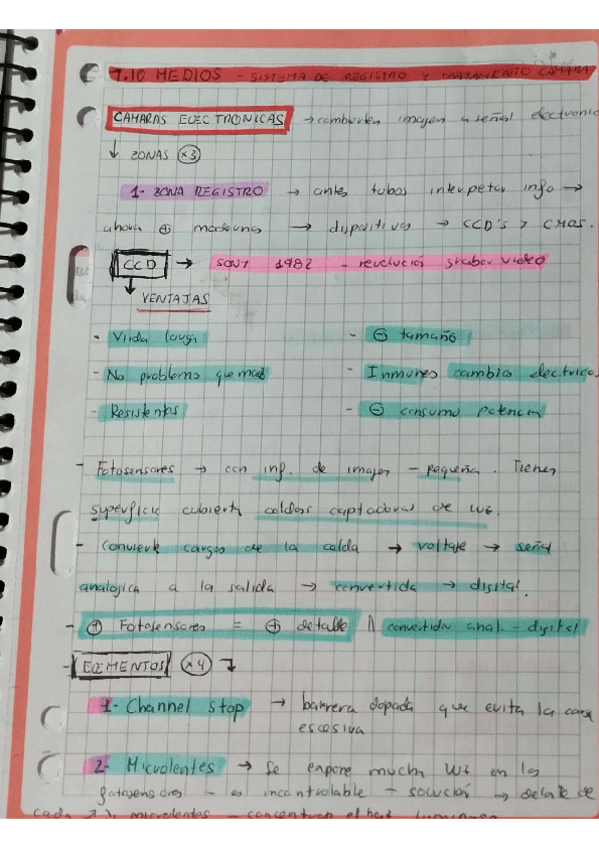 T.10 MEDIOS - SISTEMA DE REGISTRO Y TRATAMIENTO CAMARA
CAMARAS ELECTRONICAS → imagen a señal electronic
↓ ZONAS (x3)
1- ZONA REGISTRO → antes tubos info →
ahora ⊕ → dispositivos → CCD's y CMOS.
CCD → SONY 1982 - revolución grabar video
VENTAJAS
- Vida larga
- ⊖ tamaño
- No problema quemad
- Inmunes cambio electrico,
- Resistentes
- ⊖ consumo potencia
- Fotosensores → con inf. de imagen - pequeña. Tienen
superficie cubierta celdas captadoras de luz.
- Convierte cargas de la celda → voltaje → señal
analogica a la salida → convertida → digital.
- ⊕ Fotosensores = ⊕ detalle || convertida anal. - digital
- ELEMENTOS (x4)
1- Channel stop → barrera dopada que evita la carga
escesiva
2- Microlentes → Se mucha luz en los
fotosensores - es incontrolable - solución → delante de
cada microlentes - concentran el haz luminoso